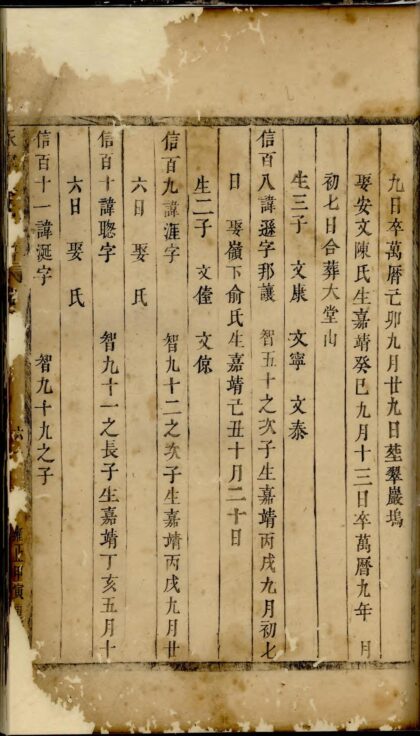 九日卒萬曆己卯九月廿九日塟翠巖塢
娶安文陳氏生嘉靖癸巳九月十三日卒萬曆九年 月
初七日合葬大堂山
生三子 文康 文寧 文泰
信百八諱遜字邦讓 智五十之次子生嘉靖丙戌九月初七
日 娶嶺下俞氏生嘉靖己丑十月二十日
生二子 文僮 文倞
信百九諱涯字 智九十二之次子生嘉靖丙戌九月廿
六日 娶 氏
信百十諱聦字 智九十一之長子生嘉靖丁亥五月十
六日 娶 氏
信百十一諱涎字 智九十九之子